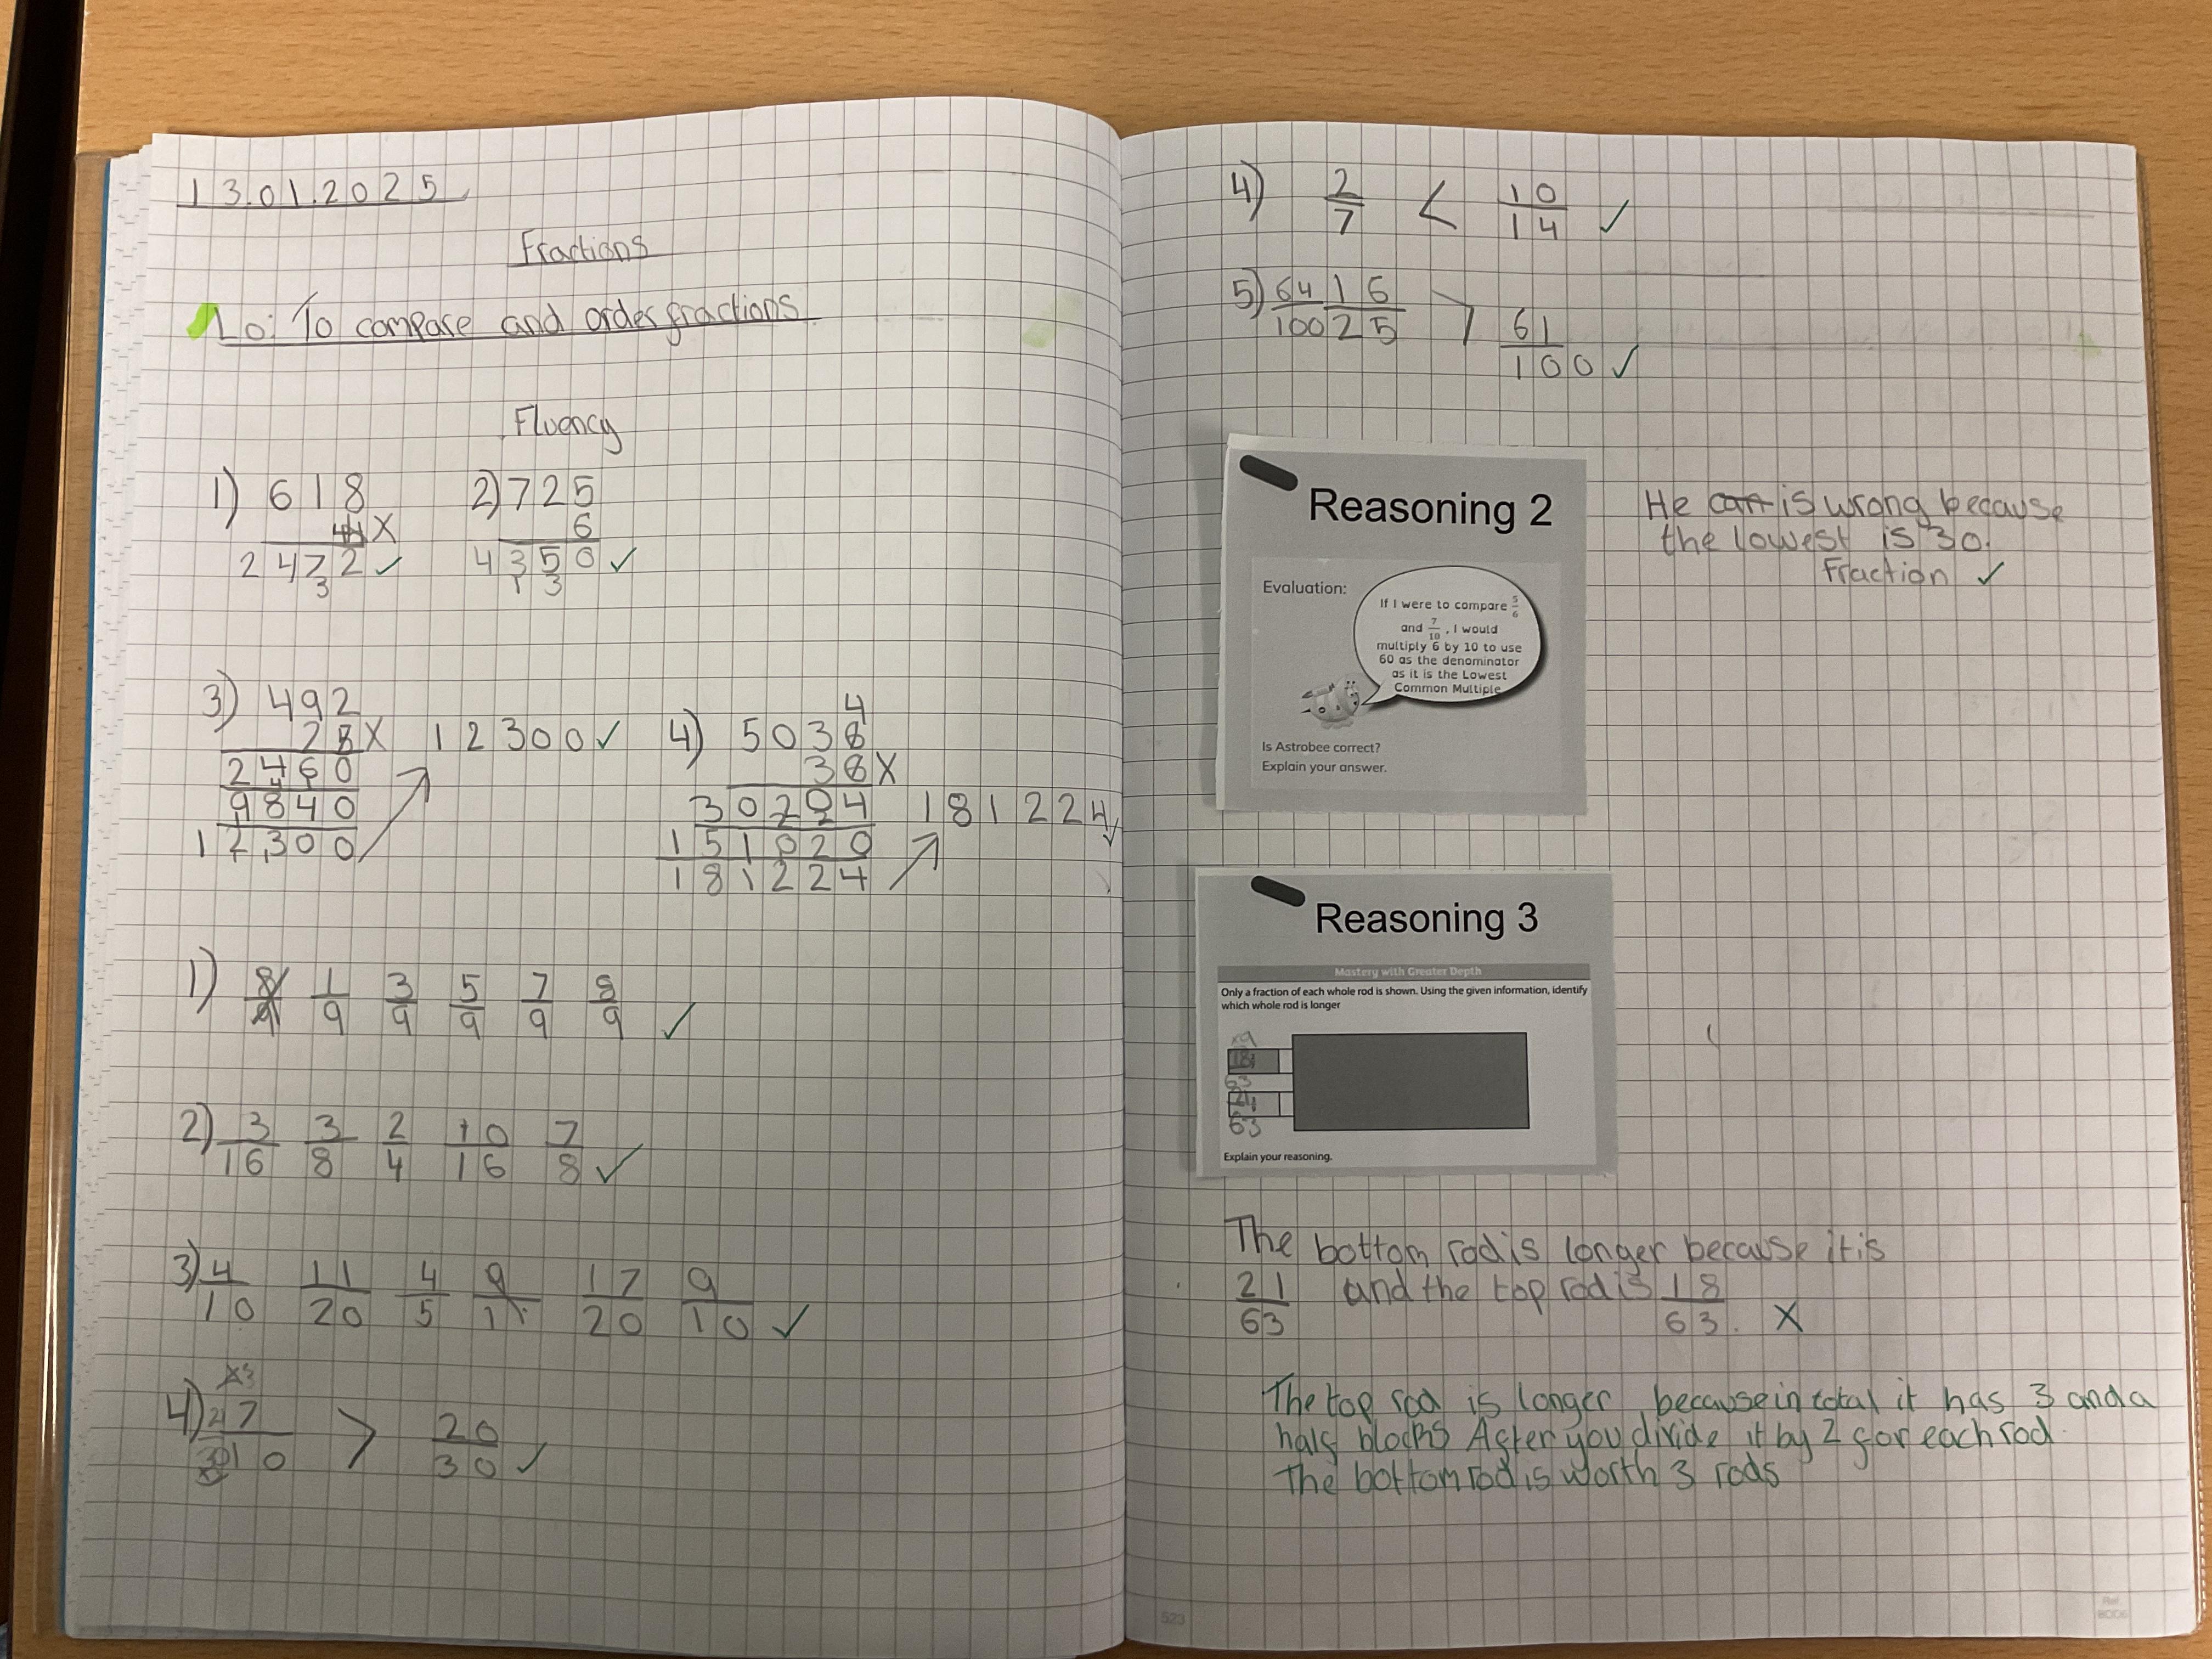 13.01.2025
Fractions
Lo: To compare and order fractions
Fluency
1) 618 2) 725
4 X 6
2472 ✓ 4350 ✓
3 1 3
3) 492 4
25 X 12300 ✓ 4) 5038
2460 36 X
9840 30204 181224 ✓
12300 151020
181224
1) 8/9 1/9 3/9 5/9 7/9 8/9 ✓
2) 3/16 3/8 2/4 10/16 7/8 ✓
3) 4/10 11/20 4/5 9/11 17/20 9/10 ✓
x3
4) 21/30 7/10 > 20/30 ✓
4) 2/7 < 10/14 ✓
5) 64/100 16/25 > 61/100 ✓
Reasoning 2
Evaluation:
If I were to compare 5/6
and 7/10, I would
multiply 6 by 10 to use
60 as the denominator
as it is the Lowest
Common Multiple
Is Astrobee correct?
Explain your answer.
He can is wrong because
the lowest is 30.
Fraction ✓
Reasoning 3
Mastery with Greater Depth
Only a fraction of each whole rod is shown. Using the given information, identify
which whole rod is longer
x9
18
63
21
63
Explain your reasoning.
The bottom rod is longer because it is
21/63 and the top rod is 18/63. X
The top rod is longer because in total it has 3 and a
half blocks After you divide it by 2 for each rod.
The bottom rod is worth 3 rods
523